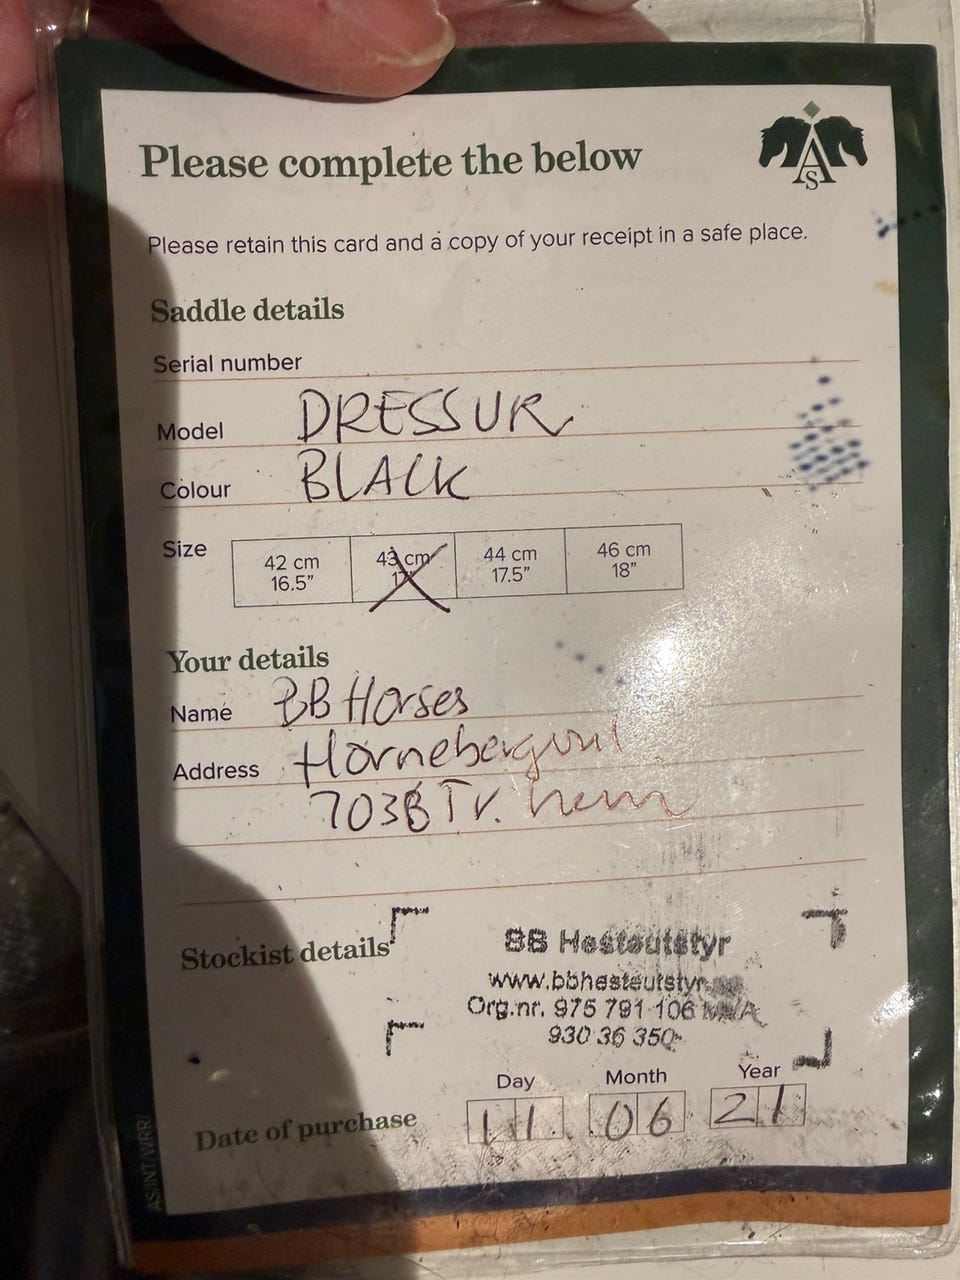 AS
Please complete the below
Please retain this card and a copy of your receipt in a safe place.
Saddle details
Serial number
Model DRESSUR
Colour BLACK
Size
42 cm 43 cm 44 cm 46 cm
16.5" 17" 17.5" 18"
Your details
Name BB Horses
Address
7038
Stockist details
BB Hesteutstyr
www.bbhesteutstyr
Org.nr. 975 791 106 MVA
930 36 350
Day Month Year
Date of purchase 11 06 21